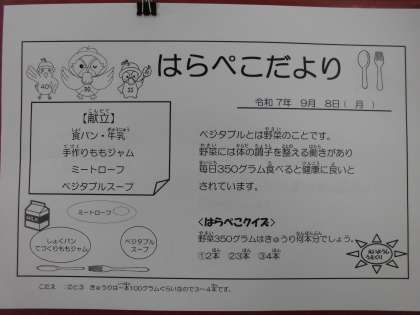 はらぺこだより
令和7年 9月 8日（月）
【献立】
食パン・牛乳
手作りももジャム
ミートローフ
ベジタブルスープ
ベジタブルとは野菜のことです。
野菜には体の調子を整える働きがあり
毎日350グラム食べると健康に良いと
されています。
<はらぺこクイズ>
野菜350グラムはきゅうり何本分でしょう。
①2本 ②3本 ③4本
ミートローフ
しょくパン
てづくりももジャム
ベジタブル
スープ
こたえ ②と3 きゅうりは一本100グラムくらいなので3～4本です。